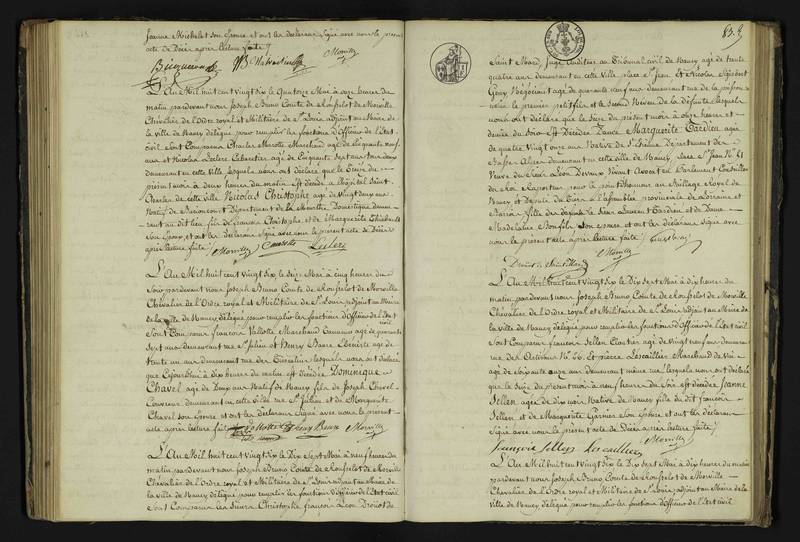 Jeanne Michelet son Epouse et ont les déclarans Signé avec nous le présent
acte de Décès après lecture faite
Morville
L'An Mil huit cent Vingt Six le Quatorze Mai à onze heures du
matin pardevant nous Joseph Bruno Comte de Rouselot de Morville
Chevalier de l'Ordre royal et Militaire de St Louis adjoint au Maire de
la Ville de Nancy délégué pour remplir les fonctions d'Officier de l'Etat
civil Sont Comparus Charles Marotte Marchand agé de Cinquante neuf
ans et Nicolas Leclerc agé de Cinquante Sept ans tous deux
demeurant en cette Ville, lesquels nous ont déclaré que le Treize du
présent mois à deux heures du matin est décédé à l'hôpital Saint
Charles de cette Ville Nicolas Christophe agé de Vingt deux ans
Natif de Département de la Meurthe Domestique demeu-
rant au dit lieu fils de François Christophe et de Marguerite
Son Epouse, et ont les déclarans Signé avec nous le présent acte de Décès
après lecture faite
Morville Marotte Leclerc
L'An Mil huit cent Vingt Six le Seize Mai à cinq heures du
Soir pardevant nous Joseph Bruno Comte de Rouselot de Morville
Chevalier de l'Ordre royal et Militaire de St Louis adjoint au Maire
de la Ville de Nancy délégué pour remplir les fonctions d'Officier de l'Etat civil
Sont Comparus François Vallotte Marchand agé de
Sept ans demeurant rue St Julien et Henry Ebéniste agé de
trente un ans demeurant rue des lesquels nous ont déclaré
que Cejourd'hui à dix heures du matin est décédé Dominique
Chavel agé de Deux ans Natif de Nancy fils de Joseph Chavel
Couvreur demeurant en cette Ville rue St Julien et de Marguerite
Chavel son Epouse et ont les déclarans Signé avec nous le présent
acte après lecture faite Vallotte Henry Morville
L'An Mil huit cent Vingt Six le Dix Sept Mai à neuf heures du
matin pardevant nous Joseph Bruno Comte de Rouselot de Morville
Chevalier de l'Ordre royal et Militaire de St Louis adjoint au Maire de
la Ville de Nancy délégué pour remplir les fonctions d'Officier de l'Etat civil
Sont Comparus les Sieurs Christophe François Léon Drouot de
83.
Saint Mard, Juge Auditeur au Tribunal civil de Nancy agé de trente
quatre ans demeurant en cette Ville place St Jean et Nicolas Sigisbert
Négociant agé de quarante cinq ans demeurant rue de la
le premier petit fils et le Second Neveu de la défunte lesquels
nous ont déclaré que le Seize du présent mois à onze heures et
demie du Soir est Décédée Dame Marguerite Tardieu agée
de quatre Vingt onze ans Native de Département des
Basses Alpes demeurant en cette Ville de Nancy place St Jean No
Veuve du Sieur Léon Drouot Vivant Avocat en Parlement Conseiller
du Roi Rapporteur pour le point d'honneur au Bailliage Royal de
Nancy et Député du Tiers à l'assemblée provinciale de Lorraine et
Barrois fille des défunts le Sieur Laurent Tardieu et de Dame
Madelaine Bonfils Son epouse et ont les déclarans Signé avec
nous le présent acte après lecture faite
Drouot de Saint Mard Morville
L'An Mil huit cent Vingt Six le Dix Sept Mai à dix heures du
matin pardevant nous Joseph Bruno Comte de Rouselot de Morville
Chevalier de l'Ordre royal et Militaire de St Louis adjoint au Maire de
la Ville de Nancy délégué pour remplir les fonctions d'Officier de l'Etat civil
Sont Comparus François Sellen Cloutier agé de Vingt neuf ans demeurant
rue des Artisans No 66. et Pierre Lescaillier Marchand de Vin
agé de soixante onze ans demeurant même rue lesquels nous ont déclaré
que le Seize du présent mois à neuf heures du Soir est décédée Jeanne
Sellen agée de dix mois Native de Nancy fille du dit François
Sellen et de Marguerite Garnier Son Epouse et ont les déclarans
Signé avec nous le présent acte de Décès après lecture faite
François Sellen Lescaillier Morville
L'An Mil huit cent Vingt Six le Dix Sept Mai à dix heures du matin
pardevant nous Joseph Bruno Comte de Rouselot de Morville
Chevalier de l'Ordre royal et Militaire de St Louis adjoint au Maire de la
Ville de Nancy délégué pour remplir les fonctions d'Officier de l'Etat civil